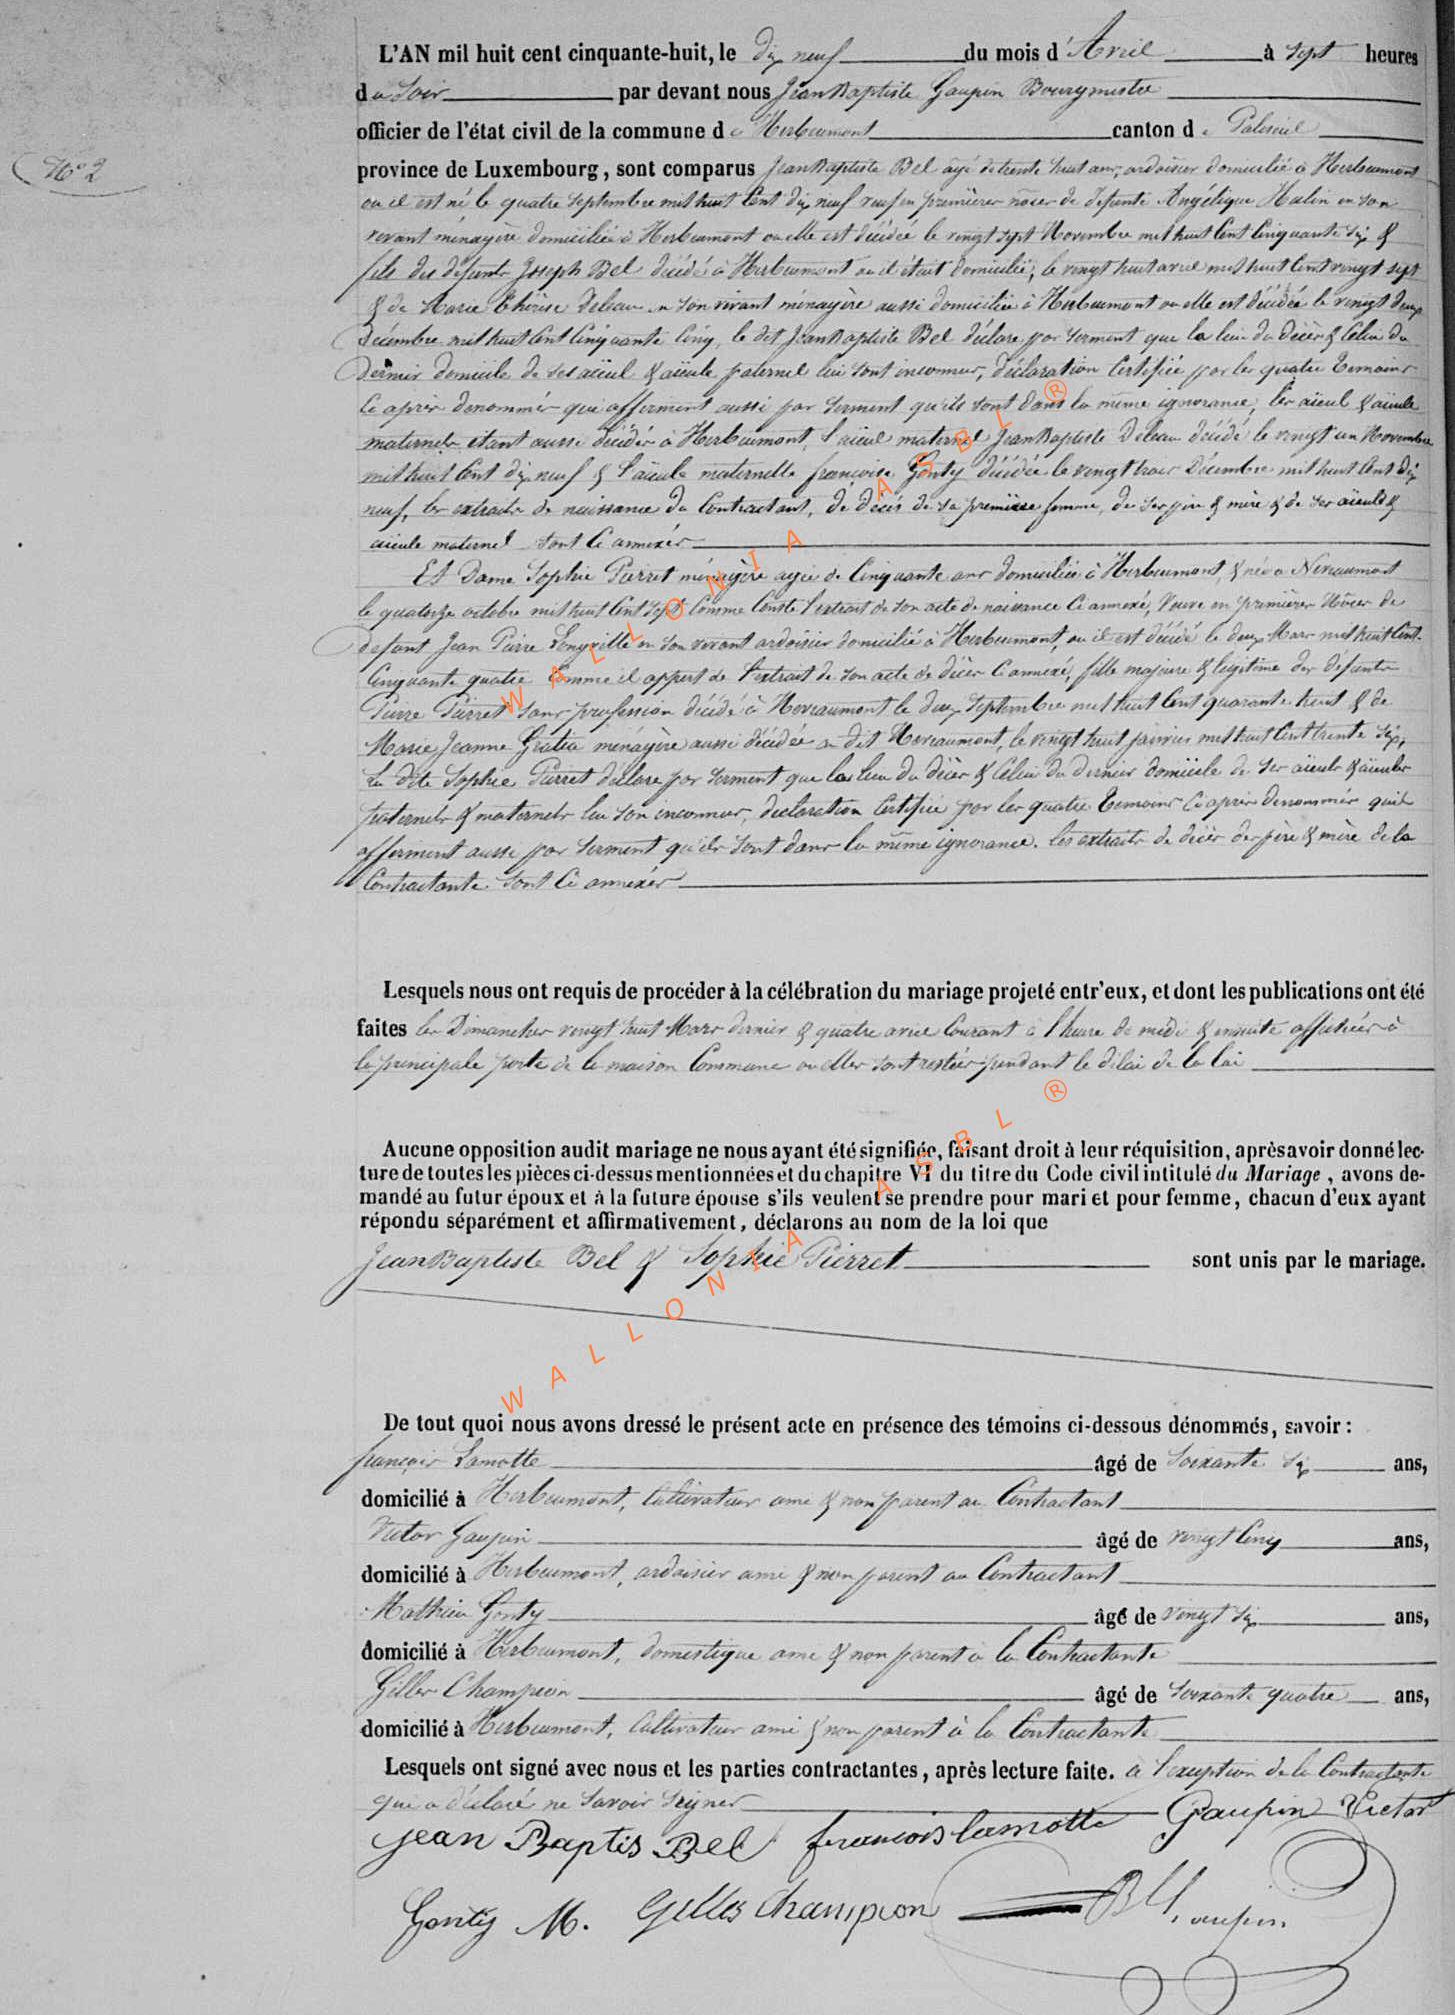 L'AN mil huit cent cinquante-huit, le dix neuf du mois d'Avril à sept heures
du soir par devant nous Jean Baptiste Gaupin Bourgmestre
officier de l'état civil de la commune de Herbeumont canton de Paliseul
N° 2
province de Luxembourg, sont comparus Jean Baptiste Bel âgé de trente huit ans, ardoisier domicilié à Herbeumont
ou il est né le quatre septembre mil huit Cent dix neuf veuf en premières noces de défunte Angélique Halin en son
vivant ménagère domiciliée à Herbeumont ou elle est décédée le vingt sept Novembre mil huit Cent Cinquante six &
fils des défunts Joseph Bel décédé à Herbeumont ou il était domicilié, le vingt huit avril mil huit Cent vingt sept
& de Marie Thérèse Deleau en son vivant ménagère aussi domiciliée à Herbeumont ou elle est décédée le vingt deux
décembre mil huit Cent Cinquante Cinq, le dit Jean Baptiste Bel déclare par serment que le lieu du décès & Celui du
dernier domicile de ses aïeul & aïeule paternel lui sont inconnus, déclaration Certifiée par les quatre témoins
Ci après dénommés qui afferment aussi par serment qu'ils sont dans la même ignorance, les aïeul & aïeule
maternels étant aussi décédés à Herbeumont, l'aïeul maternel Jean Baptiste Deleau décédé le vingt un Novembre
mil huit Cent dix neuf & l'aïeule maternelle françoise Gonty décédée le vingt trois Décembre mil huit Cent dix
neuf, les extraits de naissance du Contractant, de décès de sa première femme, de ses père & mère & de ses aïeuls &
aïeule maternel sont Ci annexés
Et Dame Sophie Pierret ménagère agée de Cinquante ans domiciliée à Herbeumont, & née à Nevraumont
le quatorze octobre mil huit Cent sept Comme Conste l'extrait de son acte de naissance Ci annexé, Veuve en premières Nôces de
défunt Jean Pierre en son vivant ardoisier domicilié à Herbeumont, ou il est décédé le deux Mars mil huit Cent
Cinquante quatre comme il appert de l'extrait de son acte de décès Ci annexé, fille majeure & légitime des défunts
Pierre Pierret sans profession décédé à Nevraumont le deux Septembre mil huit Cent quarante huit & de
Marie Jeanne Gratia ménagère aussi décédée au dit Nevraumont, le vingt huit janvier mil huit Cent trente six,
La dite Sophie Pierret déclare par serment que le lieu du décès & Celui du dernier domicile de ses aïeuls & aïeules
paternels & maternels lui son inconnus, déclaration Certifiée par les quatre témoins Ci après dénommés qui
afferment aussi par serment qu'ils sont dans la même ignorance. les extraits de décès des père & mère de la
Contractante sont Ci annexés
Lesquels nous ont requis de procéder à la célébration du mariage projeté entr'eux, et dont les publications ont été
faites les Dimanches vingt huit Mars dernier & quatre avril Courant à l'heure de midi & ensuite affichées à
la principale porte de la maison Commune ou elles sont restées pendant le délai de la loi
Aucune opposition audit mariage ne nous ayant été signifiée, faisant droit à leur réquisition, après avoir donné lec-
ture de toutes les pièces ci-dessus mentionnées et du chapitre VI du titre du Code civil intitulé du Mariage, avons de-
mandé au futur époux et à la future épouse s'ils veulent se prendre pour mari et pour femme, chacun d'eux ayant
répondu séparément et affirmativement, déclarons au nom de la loi que
Jean Baptiste Bel & Sophie Pierret sont unis par le mariage.
De tout quoi nous avons dressé le présent acte en présence des témoins ci-dessous dénommés, savoir :
françois Lamotte âgé de soixante six ans,
domicilié à Herbeumont, Cultivateur ami & non parent au Contractant
Victor Gaupin âgé de vingt Cinq ans,
domicilié à Herbeumont, ardoisier ami & non parent au Contractant
Mathieu Gonty âgé de vingt six ans,
domicilié à Herbeumont, domestique ami & non parent à la Contractante
Gilles Champion âgé de soixante quatre ans,
domicilié à Herbeumont, Cultivateur ami & non parent à la Contractante
Lesquels ont signé avec nous et les parties contractantes, après lecture faite. à l'exception de la Contractante
qui a déclaré ne savoir signer Gaupin Victor
Jean Baptis Bel francois lamotte
Gonty M. Gilles Champion Gaupin
WALLONIA ASBL ®
WALLONIA ASBL ®